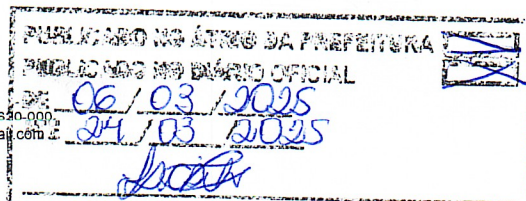 PUBLICADO NO ÁTRIO DA PREFEITURA
PUBLICADO NO DIÁRIO OFICIAL
DE 06 / 03 / 2025
24 / 03 / 2025